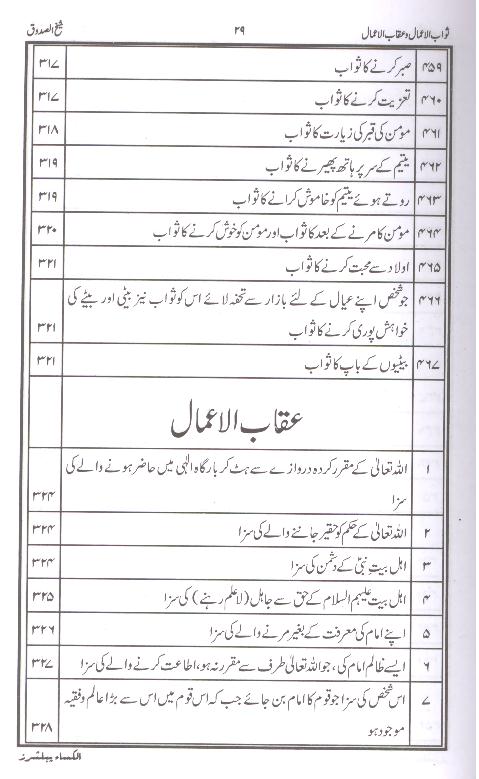 ثواب الاعمال و عقاب الاعمال ۲۹ شیخ الصدوق
۴۵۹ صبر کرنے کا ثواب ۳۱۷
۴۶۰ تعزیت کرنے کا ثواب ۳۱۷
۴۶۱ مؤمن کی قبر کی زیارت کا ثواب ۳۱۸
۴۶۲ یتیم کے سر پر ہاتھ پھیرنے کا ثواب ۳۱۹
۴۶۳ روتے ہوئے یتیم کو خاموش کرانے کا ثواب ۳۱۹
۴۶۴ مؤمن کا مرنے کے بعد کا ثواب اور مومن کو خوش کرنے کا ثواب ۳۲۰
۴۶۵ اولاد سے محبت کرنے کا ثواب ۳۲۱
۴۶۶ جو شخص اپنے عیال کے لئے بازار سے تحفہ لائے اس کو ثواب نیز بیٹی اور بیٹے کی
خواہش پوری کرنے کا ثواب ۳۲۱
۴۶۷ بیٹیوں کے باپ کا ثواب ۳۲۱
عقاب الاعمال
۱ اللہ تعالیٰ کے مقرر کردہ دروازے سے ہٹ کر بارگاہ الٰہی میں حاضر ہونے والے کی
سزا ۳۲۴
۲ اللہ تعالیٰ کے حکم کو حقیر جاننے والے کی سزا ۳۲۴
۳ اہل بیتِ نبیؐ کے دشمن کی سزا ۳۲۴
۴ اہل بیت علیہم السلام کے حق سے جاہل (لاعلم رہنے) کی سزا ۳۲۵
۵ اپنے امام کی معرفت کے بغیر مرنے والے کی سزا ۳۲۶
۶ ایسے ظالم امام کی، جو اللہ تعالیٰ طرف سے مقرر نہ ہو، اطاعت کرنے والے کی سزا ۳۲۷
۷ اس شخص کی سزا جو قوم کا امام بن جائے جب کہ اس قوم میں اس سے بڑا عالم و فقیہ
موجود ہو ۳۲۸
الکساء پبلشرز